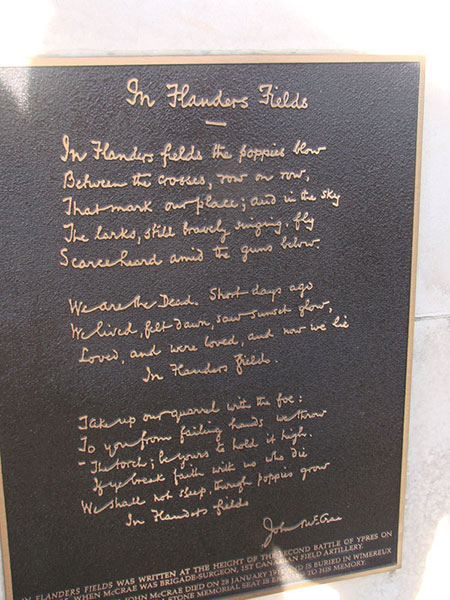 In Flanders Fields
In Flanders fields the poppies blow
Between the crosses, row on row,
That mark our place; and in the sky
The larks, still bravely singing, fly
Scarce heard amid the guns below.
We are the Dead. Short days ago
We lived, felt dawn, saw sunset glow,
Loved, and were loved, and now we lie
In Flanders fields.
Take up our quarrel with the foe:
To you from failing hands we throw
The torch; be yours to hold it high.
If ye break faith with us who die
We shall not sleep, though poppies grow
In Flanders fields
John McCrae
IN FLANDERS FIELDS WAS WRITTEN AT THE HEIGHT OF THE SECOND BATTLE OF YPRES ON
WHEN McCRAE WAS BRIGADE-SURGEON, 1ST CANADIAN FIELD ARTILLERY.
JOHN McCRAE DIED ON 28 JANUARY AND IS BURIED IN WIMEREUX
STONE MEMORIAL SEAT IS TO HIS MEMORY.